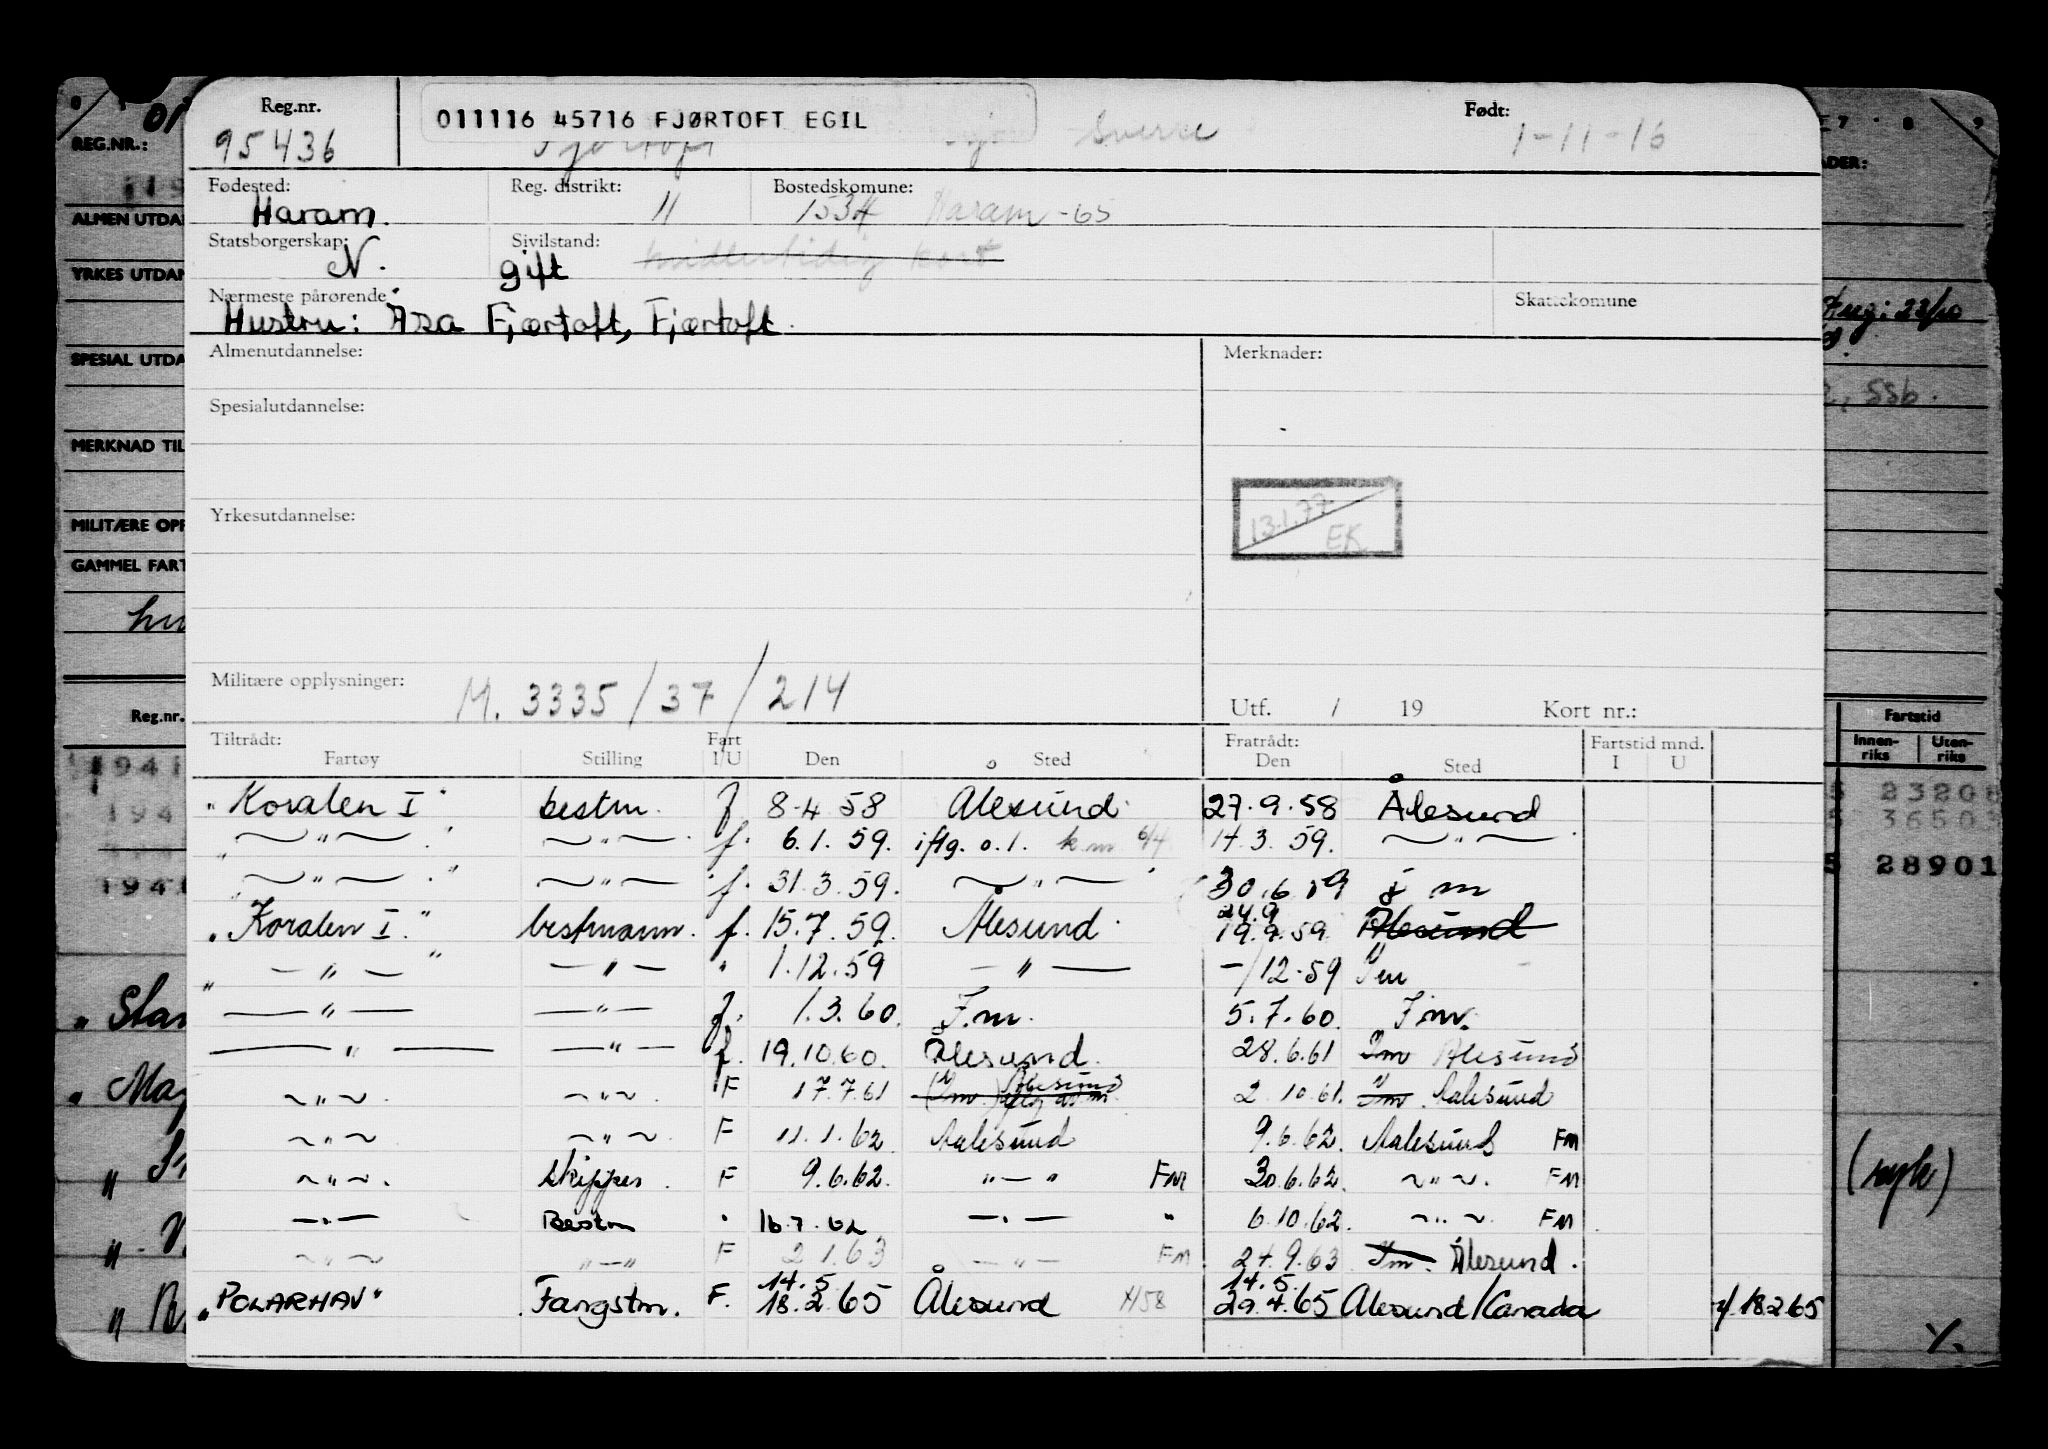 Reg.nr. 011116 45716 FJØRTOFT EGIL Sverre Født:
95436 1-11-16
Fødested: Reg. distrikt: Bostedskomune:
Haram. 11 1534 Haram -65
Statsborgerskap: Sivilstand:
N. gift
Nærmeste pårørende Skattekomune
Hustru: Åsa Fjærtoft, Fjærtoft.
Almenutdannelse: Merknader:
Spesialutdannelse:
13.1.77 EK
Yrkesutdannelse:
Militære opplysninger: M. 3335/37/214
Utf. / 19 Kort nr.:
Tiltrådt: Fart Fratrådt: Fartstid mnd.
Fartøy Stilling I/U Den Sted Den Sted I U
"Koralen I" bestm. f 8-4 58 Ålesund 27.9.58 Ålesund
" — " — " — " — f. 6.1.59. iftg. o.l. k.m 6/4 14.3.59. — " —
" — " — " — " — f. 31.3.59. — " — 30.6.59 i m
"Koralen I." bestmann. f. 15.7.59. Ålesund 24.9 19.9.59 Ålesund
" — " — " — " — " 1.12.59 — " — -/12-59 Im
— " — — " — f. 1.3.60. F.m. 5.7.60. F.m.
— " — — " — f. 19.10.60. Ålesund. 28.6.61 Im Ålesund
~ " ~ ~ " ~ F 17.7.61 (Im) Ålesund 2.10.61. Im. Aalesund
~ " ~ ~ " ~ F 11.1.62 Aalesund 9.6.62. Aalesund FM
~ " ~. Skipper F 9.6.62. " — " FM 30.6.62. ~ " ~. FM
— " — Bestm " 16.7.62 — " — " 6.10.62. ~ " ~. FM
~ " ~ " — " F 2.1.63 — " — FM 24.9.63 Im. Ålesund.
"POLARHAV" Fangstm. F. 14.5. 18.2.65 Ålesund 4/58 14.5. 29.4.65 Ålesund/Canada 18.2.65
REG.NR.:
ALMEN UTDA
YRKES UTDAN
SPESIAL UTDA
MERKNAD TIL
MILITÆRE OPP
GAMMEL FART
Reg.nr.
1941
ADER:
22/10
, SSB.
Fartstid
Innen-riks Uten-riks
23208
36503
28901